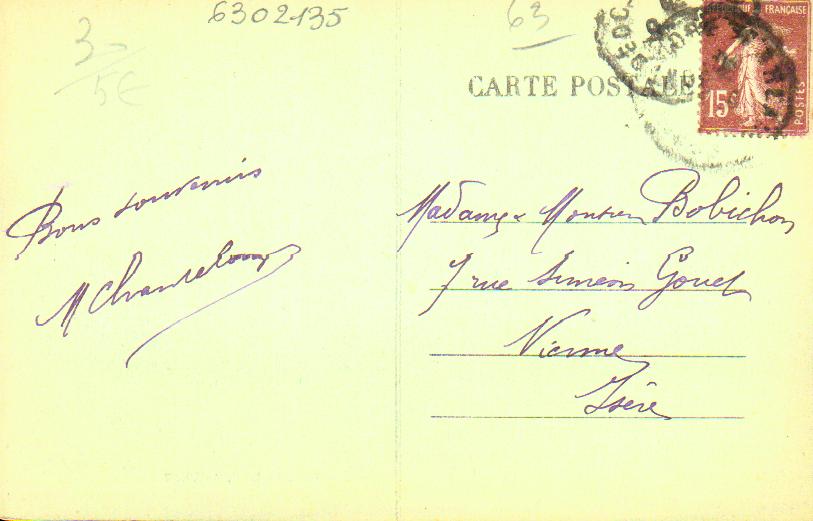 6302135
63
3
5€
CARTE POSTALE
RÉPUBLIQUE FRANÇAISE
15c
POSTES
Bons souvenirs
M Chanteloup
Madame & Monsieur Bobichon
7 rue Simeon Gouet
Vienne
Isère